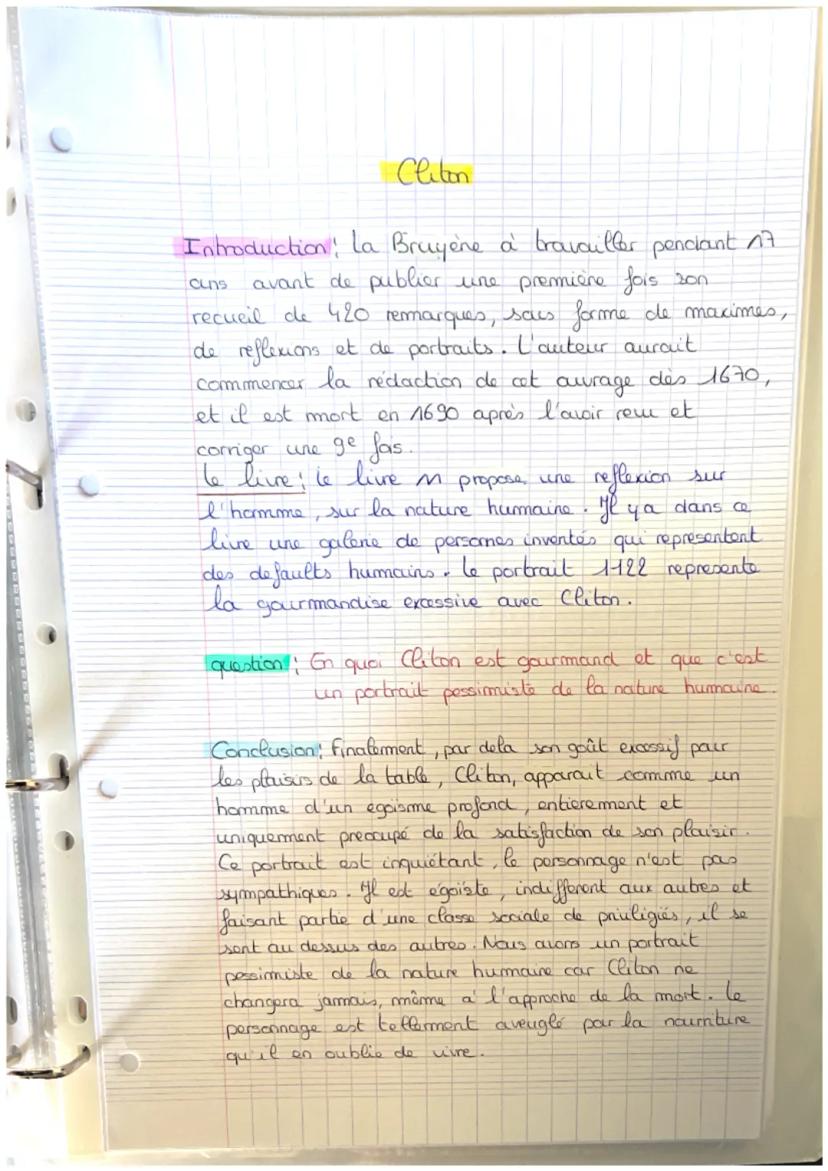 Cliton
Introduction : la Bruyère à travailler pendant 17
ans avant de publier une première fois son
recueil de 420 remarques, sous forme de maximes,
de reflexions et de portraits. L'auteur aurait
commencer la rédaction de cet ouvrage dès 1670,
et il est mort en 1690 après l'avoir revu et
corriger une 9e fois.
Le livre : le livre M propose une reflexion sur
l'homme, sur la nature humaine. Il y a dans ce
livre une galerie de persones inventés qui representent
des defaults humains. Le portrait 1122 represente
la gourmandise excessive avec Cliton.
question : En quoi Cliton est gourmand et que c'est
un portrait pessimiste de la nature humaine.
Conclusion : Finalement, par dela son goût excessif pour
les plaisirs de la table, Cliton, apparait comme un
homme d'un egoisme profond, entierement et
uniquement preocupé de la satisfaction de son plaisir.
Ce portrait est inquiétant, le personnage n'est pas
sympathiques. Il est égoïste, indifferent aux autres et
faisant partie d'une classe sociale de priviligiés, il se
sent au dessus des autres. Nous avons un portrait
pessimiste de la nature humaine car Cliton ne
changera jamais, même à l'approche de la mort. Le
personnage est tellement aveuglé par la nourriture
qu'il en oublie de vivre.